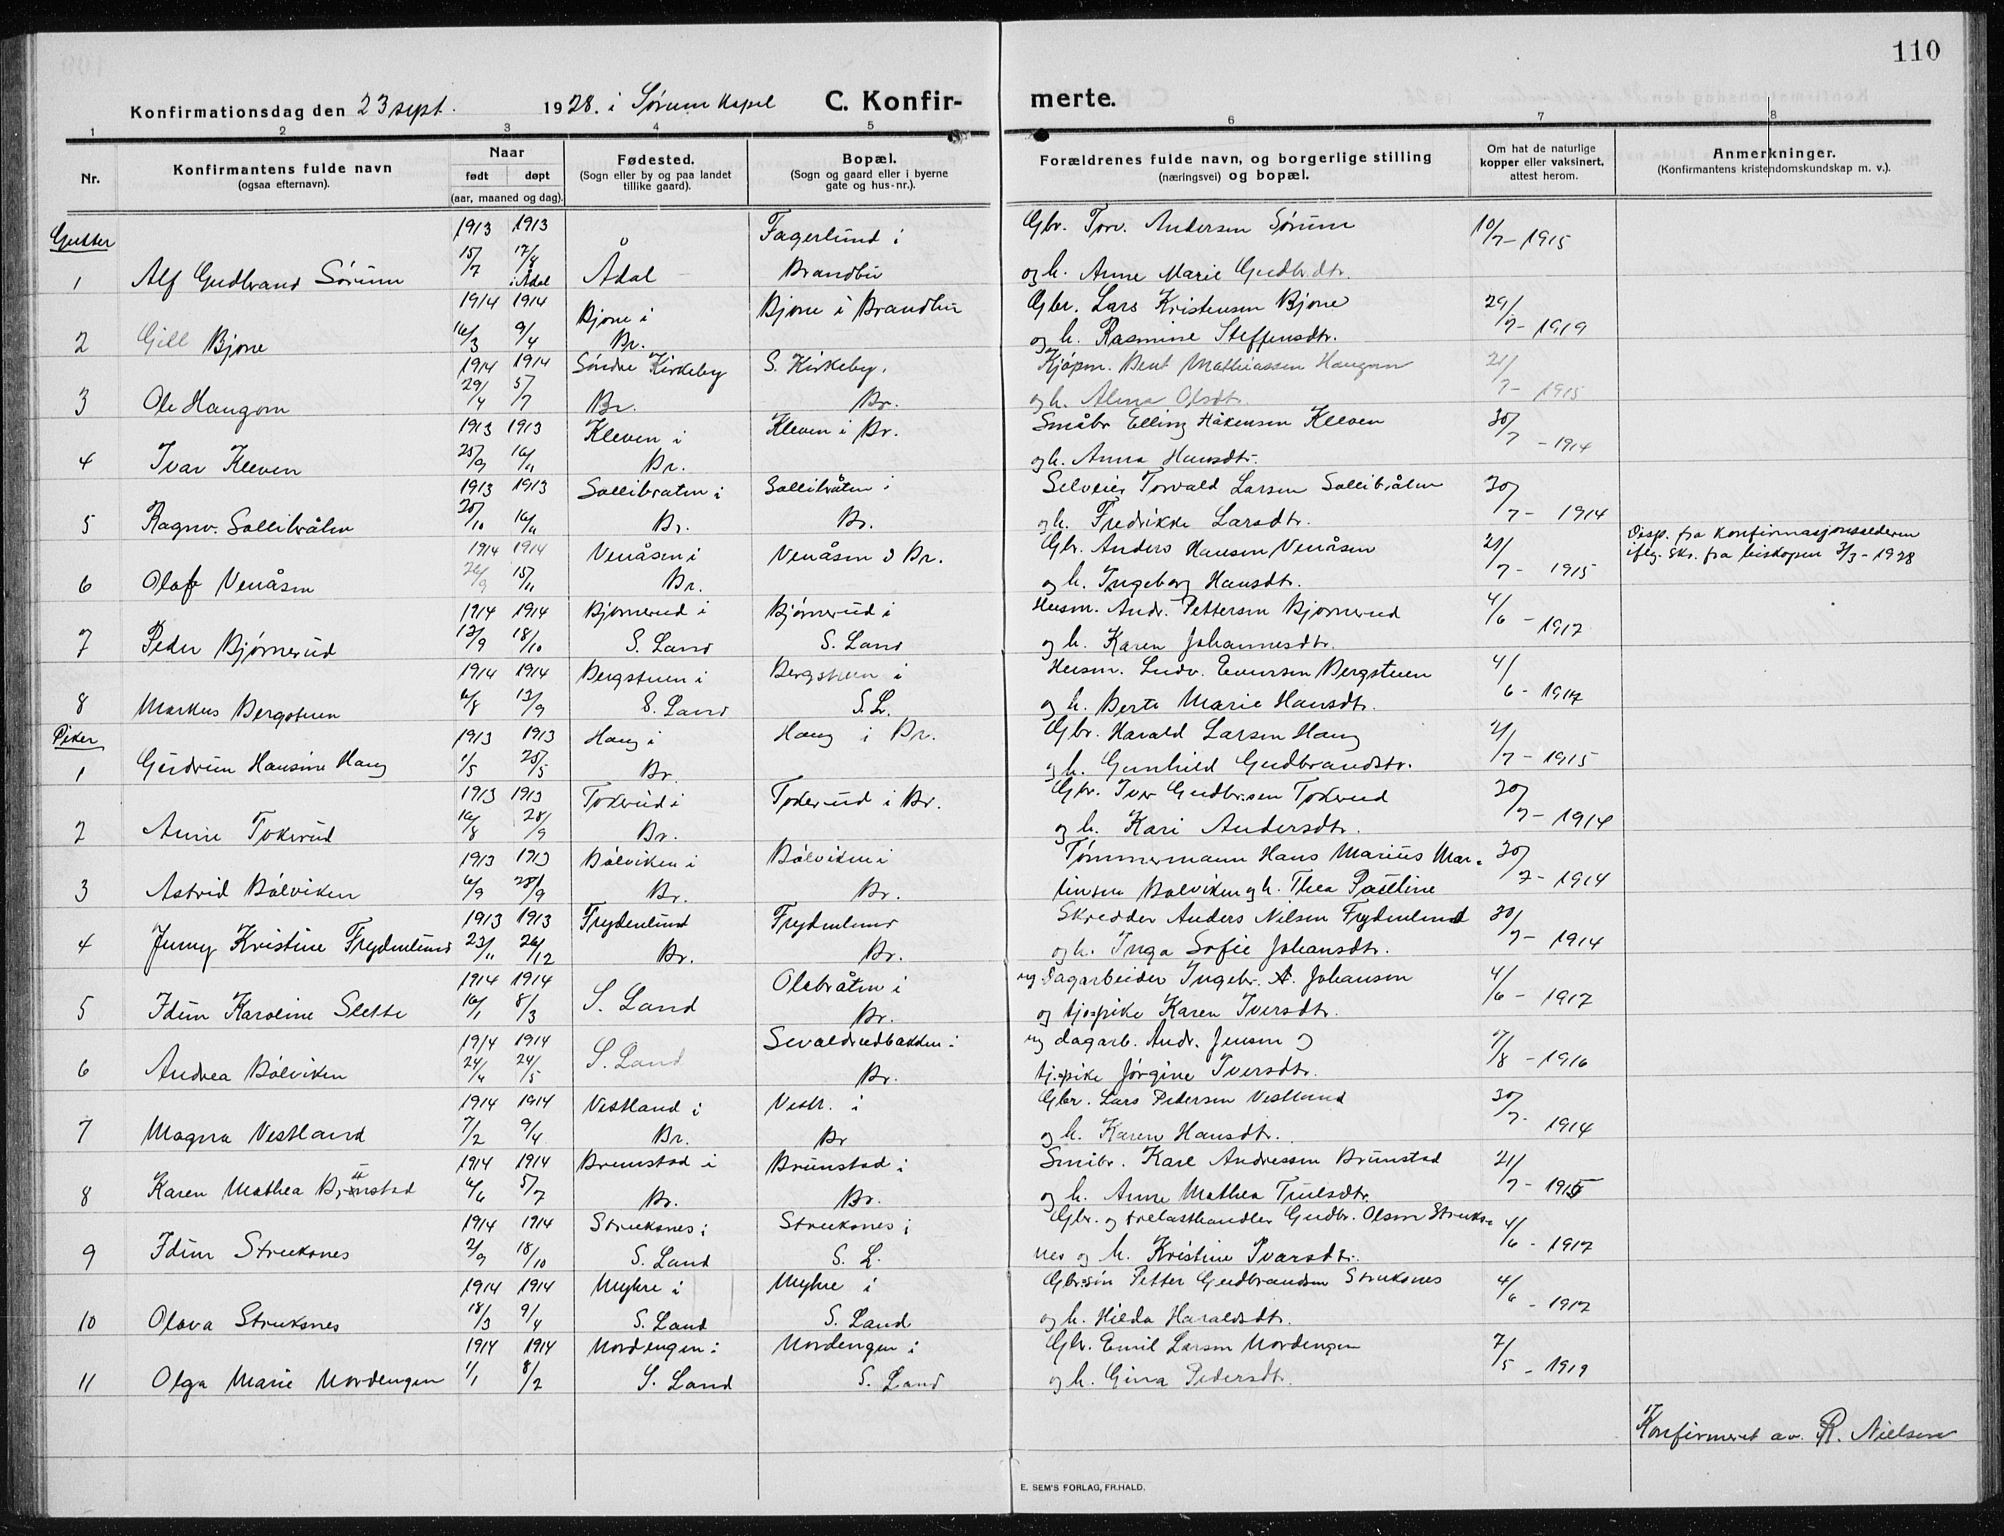 110
Konfirmationsdag den 23 sept. 1928. i Sørum Kapel C. Konfirmerte.
1 2 3 4 5 6 7 8
Nr.
Konfirmantens fulde navn
(ogsaa efternavn).
Naar
født døpt
(aar, maaned og dag).
Fødested.
(Sogn eller by og paa landet
tillike gaard).
Bopæl.
(Sogn og gaard eller i byerne
gate og hus-nr.).
Forældrenes fulde navn, og borgerlige stilling
(næringsvei) og bopæl.
Om hat de naturlige
kopper eller vaksinert,
attest herom.
Anmerkninger.
(Konfirmantens kristendomskundskap m. v.).
Gutter
1913 1913 Fagerlund i Gbr. Torv. Andersen Sørum 10/7 - 1915
1 Alf Gudbrand Sørum 15/7 17/8 i Ådal Ådal Brandbu og h. Anne Marie Gudbr.dtr.
1914 1914 Bjone i Bjone i Brandbu Gbr. Lars Kristensen Bjone 29/7 - 1919
2 Gill Bjone 16/3 9/4 Br. og h. Rasmine Steffensdtr.
1914 1914 Søndre Kirkeby S. Kirkeby, Kjøpm. Bent Mathiassen Haugom 21/7 - 1915
3 Ole Haugom 29/4 5/7 Br. Br. og h. Alma Olsdtr.
1913 1913 Kleven i Kleven i Br. Småbr Elling Håkensen Kleven 30/7 - 1914
4 Ivar Kleven 25/9 16/11 Br. og h. Anna Hansdtr.
1913 1913 Sollibraten i Sollibråten i Selveier Torvald Larsen Sollibråten 30/7 - 1914
5 Ragnv. Sollibråten 20/10 16/11 Br. Br. og h. Fredrikke Larsdtr.
1914 1914 Venåsen i Venåsen i Br. Gbr. Anders Hansen Venåsen 21/7 - 1915 Disp. fra Konfirmasjonsalderen
6 Olaf Venåsen 26/9 15/11 Br. og h. Ingeborg Hansdtr. iflg. skr. fra biskopen 3/3 - 1928
1914 1914 Bjørnerud i Bjørnerud i Husm. Andr. Pettersen Bjørnerud 4/6 - 1917
7 Peder Bjørnerud 12/9 18/10 S. Land S. Land og h. Karen Johannesdtr.
1914 1914 Bergstuen i Bergstuen i Husm. Ludv. Evensen Bergstuen 4/6 - 1917
8 Markus Bergstuen 6/8 13/9 S. Land S. L. og h. Berte Marie Hansdtr.
Piker 1913 1913 Haug i Haug i Br. Gbr. Harald Larsen Haug 21/7 - 1915
1 Gudrun Hansine Haug 1/5 25/5 Br. og h. Gunhild Gudbrandsdtr.
1913 1913 Tokerud i Tokerud i Br. Gbr. Iver Gudbr.sen Tokerud 30/7 - 1914
2 Anne Tokerud 16/8 28/9 Br. og h. Kari Andersdtr.
1913 1913 Bølviken i Bølviken i Tømmermann Hans Marius Mar- 30/7 - 1914
3 Astrid Bølviken 6/9 28/9 Br. Br. tinsen Bølviken og h. Thea Pauline
1913 1913 Frydenlund Frydenlund Skredder Anders Nilsen Frydenlund 30/7 - 1914
4 Jenny Kristine Frydenlund 23/11 26/12 Br. Br. og h. Inga Sofie Johansdtr.
1914 1914 Olebråten i ug dagarbeider Ingebr. A. Johansen 4/6 - 1917
5 Idun Karoline Slette 16/1 8/3 S. Land Br. og tj.pike Karen Iversdtr.
1914 1914 Sevaldrudbakken i ug dagarb. Andr. Jensen og 17/8 - 1916
6 Andrea Bølviken 24/4 24/5 S. Land Br. tj.pike Jørgine Iversdtr.
1914 1914 Vestland i Vestl. i Gbr. Lars Pedersen Vestland 30/7 - 1914
7 Magna Vestland 7/2 9/4 Br. Br og h. Karen Hansdtr.
1914 1914 Brunstad i Brunstad i Småbr. Karl Andressen Brunstad 21/7 - 1915
8 Karen Mathea Brunstad 6/6 5/7 Br. Br. og h. Anne Mathea Truelsdtr.
1914 1914 Struksnes i Struksnes i Gbr. og trelasthandler Gudbr. Olsen Struks- 4/6 - 1917
9 Idun Struksnes 2/9 18/10 S. Land S. L. nes og h. Kristine Ivarsdtr.
1914 1914 Myhre i Myhre i Gbr.søn Petter Gudbrandsen Struksnes 4/6 - 1917
10 Olava Struksnes 18/3 9/4 S. Land S. Land og h. Hilda Haraldsdtr.
1914 1914 Nordengen i Nordengen i Gbr. Emil Larsen Nordengen 7/5 - 1919
11 Olga Marie Nordengen 1/1 8/2 S. Land S. Land og h. Gina Pedersdtr.
Konfirmeret av R. Nielsen
E. SEM'S FORLAG, FR.HALD.